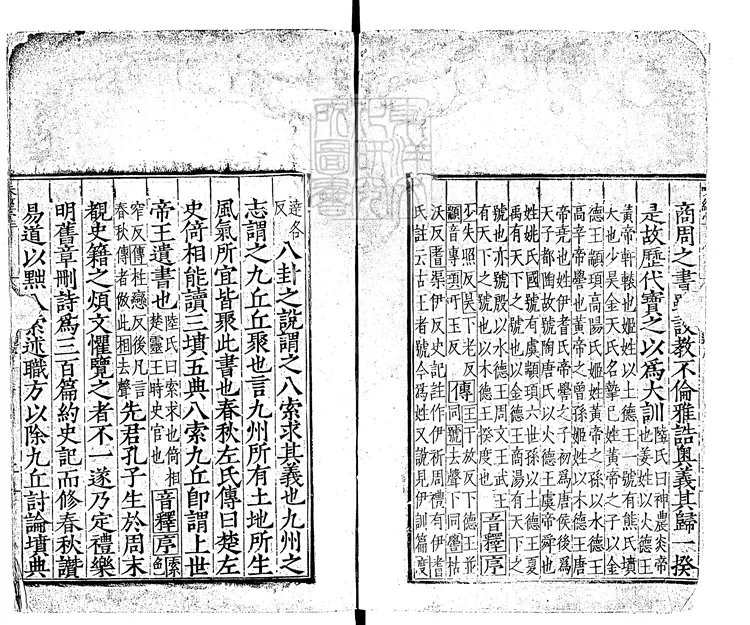 商周之書雖設教不倫雅誥奧義其歸一揆
是故歷代寶之以爲大訓陸氏曰神農炎帝也姜姓以火德王
黃帝軒轅也姬姓以土德王一號有熊氏墳
大也少昊金天氏名摯巳姓黃帝之子以金
德王顓頊高陽氏姬姓黃帝之孫以水德王
高辛帝嚳也黃帝之曾孫姬姓以木德王唐
帝堯也姓伊耆氏帝嚳之子初爲唐侯後爲
天子都陶故號陶唐氏以火德王虞帝舜也
姓姚氏國號有虞顓頊六世孫以土德王夏
禹有天下之號也以金德王商湯有天下之
號也亦號殷以水德王周文王武王
有天下之號也以木德王揆度也 音釋序
少失照反昊下老反 傳王于放反下德王並
同號去聲下同嚳枯
顓音專頊吁玉反
沃反耆渠伊反史記註作伊祈周禮有伊耆
氏註云古王者號今爲姓又說見伊訓篇度
達各反八卦之說謂之八索求其義也九州之
志謂之九丘丘聚也言九州所有土地所生
風氣所宜皆聚此書也春秋左氏傳曰楚左
史倚相能讀三墳五典八索九丘卽謂上世
帝王遺書也陸氏曰索求也倚相楚靈王時史官也 音釋序索色
窄反傳柱戀反後凡言春秋傳者倣此相去聲先君孔子生於周末
覩史籍之煩文懼覽之者不一遂乃定禮樂
明舊章刪詩爲三百篇約史記而修春秋讚
易道以黜八索述職方以除九丘討論墳典